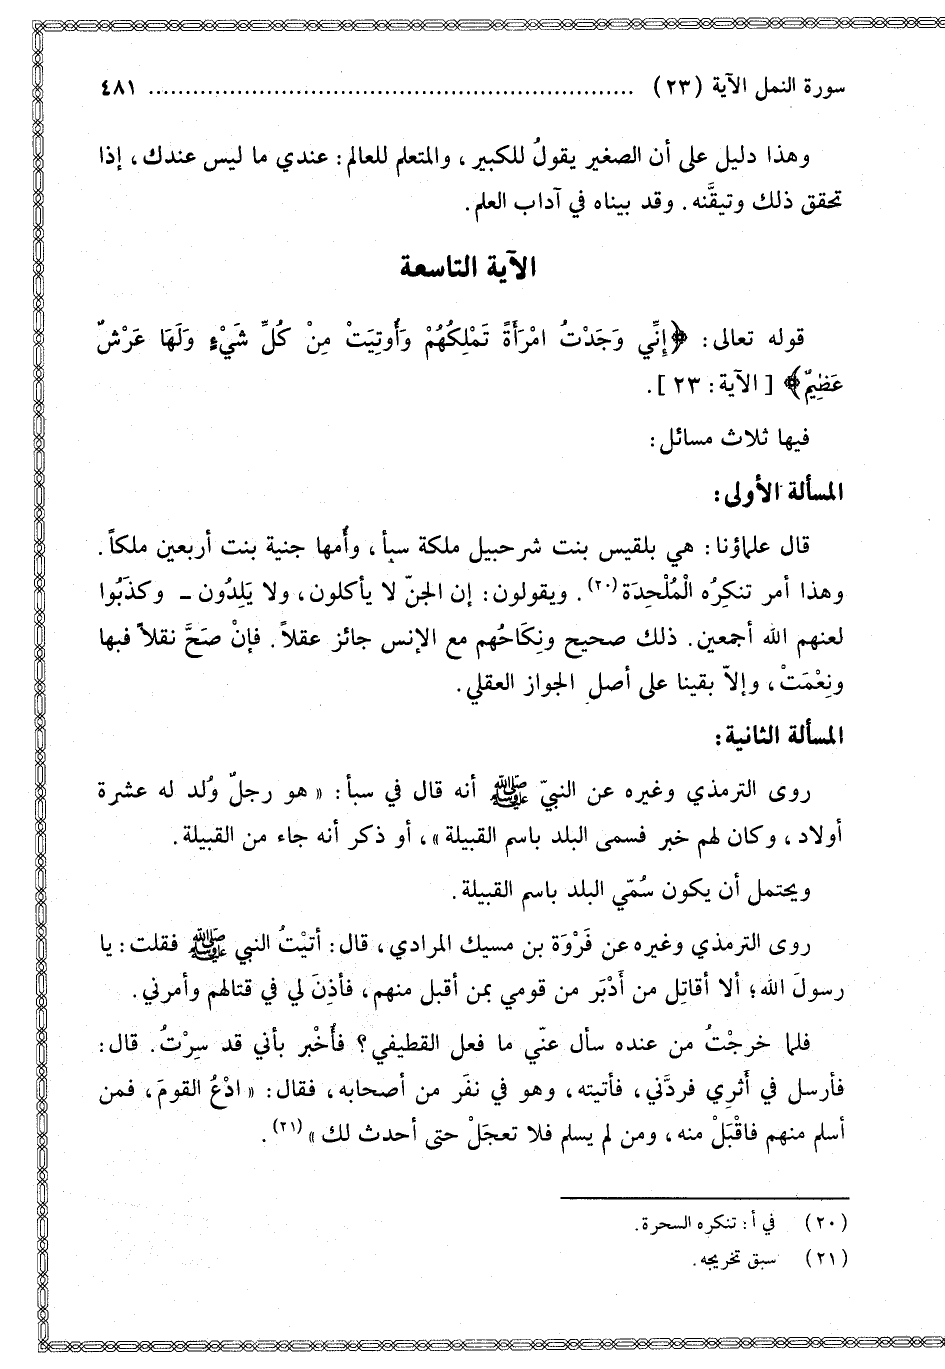 سورة النمل الآية (٢٣) ................................................................ ٤٨١
وهذا دليل على أن الصغير يقولُ للكبير، والمتعلم للعالم: عندي ما ليس عندك، إذا
تحقق ذلك وتيقَّنه. وقد بيناه في آداب العلم.
الآية التاسعة
قوله تعالى: ﴿إِنِّي وَجَدْتُ امْرَأَةً تَمْلِكُهُمْ وَأُوتِيَتْ مِنْ كُلِّ شَيْءٍ وَلَهَا عَرْشٌ
عَظِيمٌ﴾ [الآية: ٢٣].
فيها ثلاث مسائل:
المسألة الأولى:
قال علماؤنا: هي بلقيس بنت شرحبيل ملكة سبأ، وأُمها جنية بنت أربعين ملكاً.
وهذا أمر تنكرُه الْمُلْحِدَة(٢٠). ويقولون: إن الجنّ لا يأكلون، ولا يَلِدُون ـ وكذَبُوا
لعنهم الله أجمعين. ذلك صحيح ونِكَاحُهم مع الإنس جائز عقلاً. فإنْ صَحَّ نقلاً فبها
ونِعْمَتْ، وإلاّ بقينا على أصل الجواز العقلي.
المسألة الثانية:
روى الترمذي وغيره عن النبيّ ﷺ أنه قال في سبأ: «هو رجلٌ وُلد له عشرة
أولاد، وكان لهم خبر فسمى البلد باسم القبيلة»، أو ذكر أنه جاء من القبيلة.
ويحتمل أن يكون سُمّي البلد باسم القبيلة.
روى الترمذي وغيره عن فَرْوَة بن مسيك المرادي، قال: أتيْتُ النبي ﷺ فقلت: يا
رسولَ الله؛ ألا أقاتِل من أَدْبَر من قومي بمن أقبل منهم، فأذِنَ لي في قتالهم وأمرني.
فلما خرجْتُ من عنده سأل عنّي ما فعل القطيفي؟ فأُخْبر بأني قد سِرْتُ. قال:
فأرسل في أَثرِي فردَّني، فأتيته، وهو في نفَر من أصحابه، فقال: «ادْعُ القومَ، فمن
أسلم منهم فاقْبَلْ منه، ومن لم يسلم فلا تعجَلْ حتى أحدث لك»(٢١).
(٢٠) في أ: تنكره السحرة.
(٢١) سبق تخريجه.